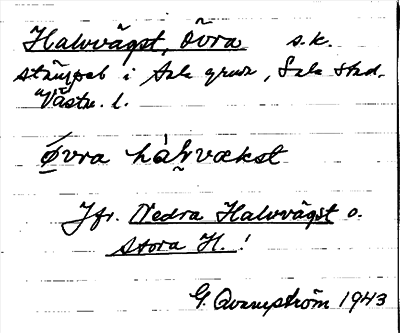 Halvvägst, Övra s.k.
stämpel i Sala gruva, Sala stad.
Västm. l.
Øvra hålvvækst
Jfr. Nedra Halvvägst o.
Stora H.!
G. Qvarnström 1943